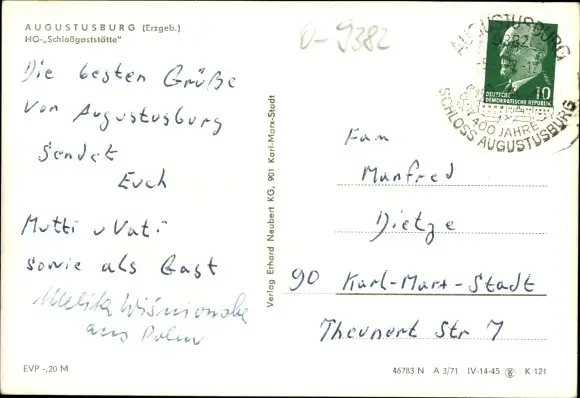 AUGUSTUSBURG (Erzgeb.)
HO-„Schloßgaststätte"
Die besten Grüße
von Augustusburg
sendet
Euch
Mutti u Vati
sowie als Gast
aus Polen
EVP -,20 M
Verlag Erhard Neubert KG, 901 Karl-Marx-Stadt
0-9382
AUGUSTUSBURG
9382
10
DEUTSCHE
DEMOKRATISCHE REPUBLIK
400 JAHRE
SCHLOSS AUGUSTUSBURG
Fam
Manfred
Dietze
90 Karl-Marx-Stadt
Theunert Str 7
46783 N A 3/71 IV-14-45 K 121